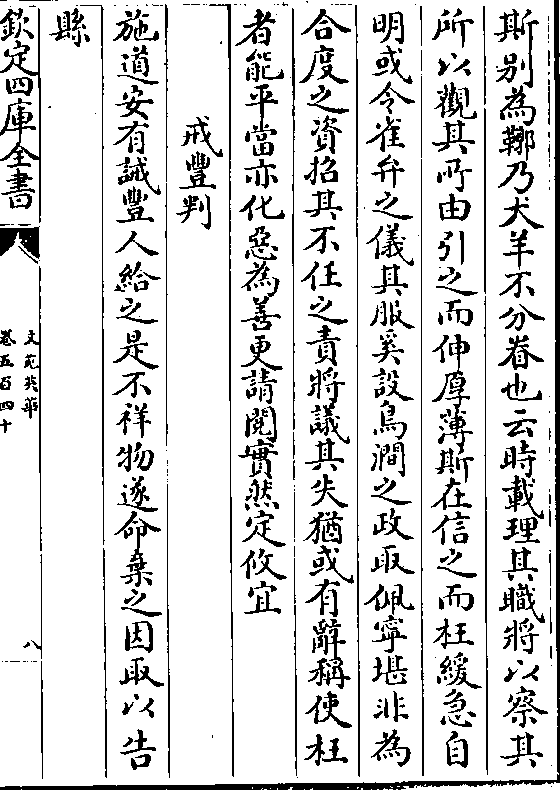 斯别為鞹乃犬羊不分眷也云時載理其職將以察其
所以觀其所由引之而伸厚薄斯在信之而枉緩急自
明或令雀弁之儀其服奚設鳥澗之政取佩寧堪非為
合度之資招其不任之責將議其失猶或有辭稱使枉
者能平當亦化惡為善更請閱實然定攸宜
戒豐判
施道安有誡豐人給之是不祥物遂命棄之因取以告
縣
欽定四庫全書
文苑英華
卷五百四十
八